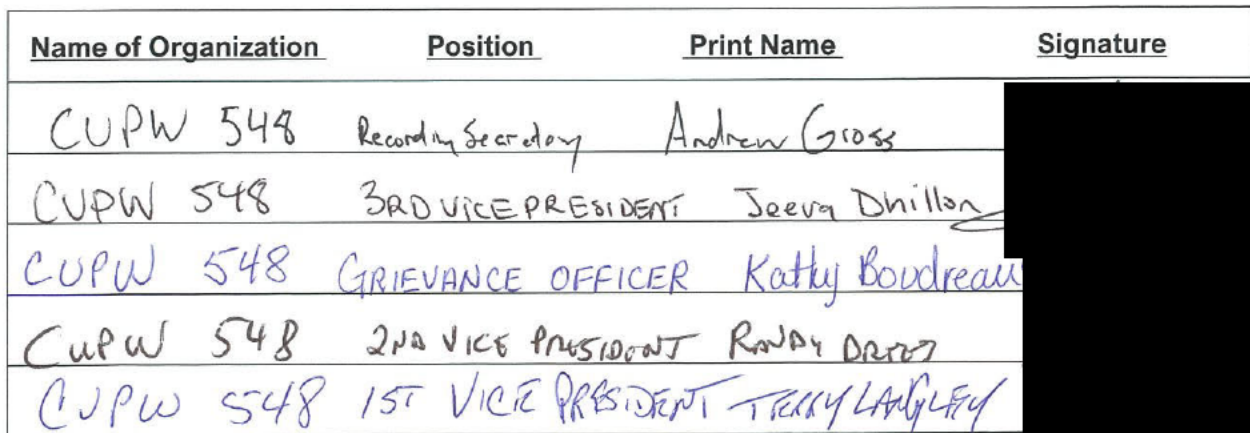 Name of Organization Position Print Name Signature
CUPW 548 Recording Secretary Andrew Gross
CUPW 548 3RD VICE PRESIDENT Jeeva Dhillon
CUPW 548 GRIEVANCE OFFICER Kathy Boudreau
CUPW 548 2ND VICE PRESIDENT RANDY
CUPW 548 1ST VICE PRESIDENT TERRY LANGLEY